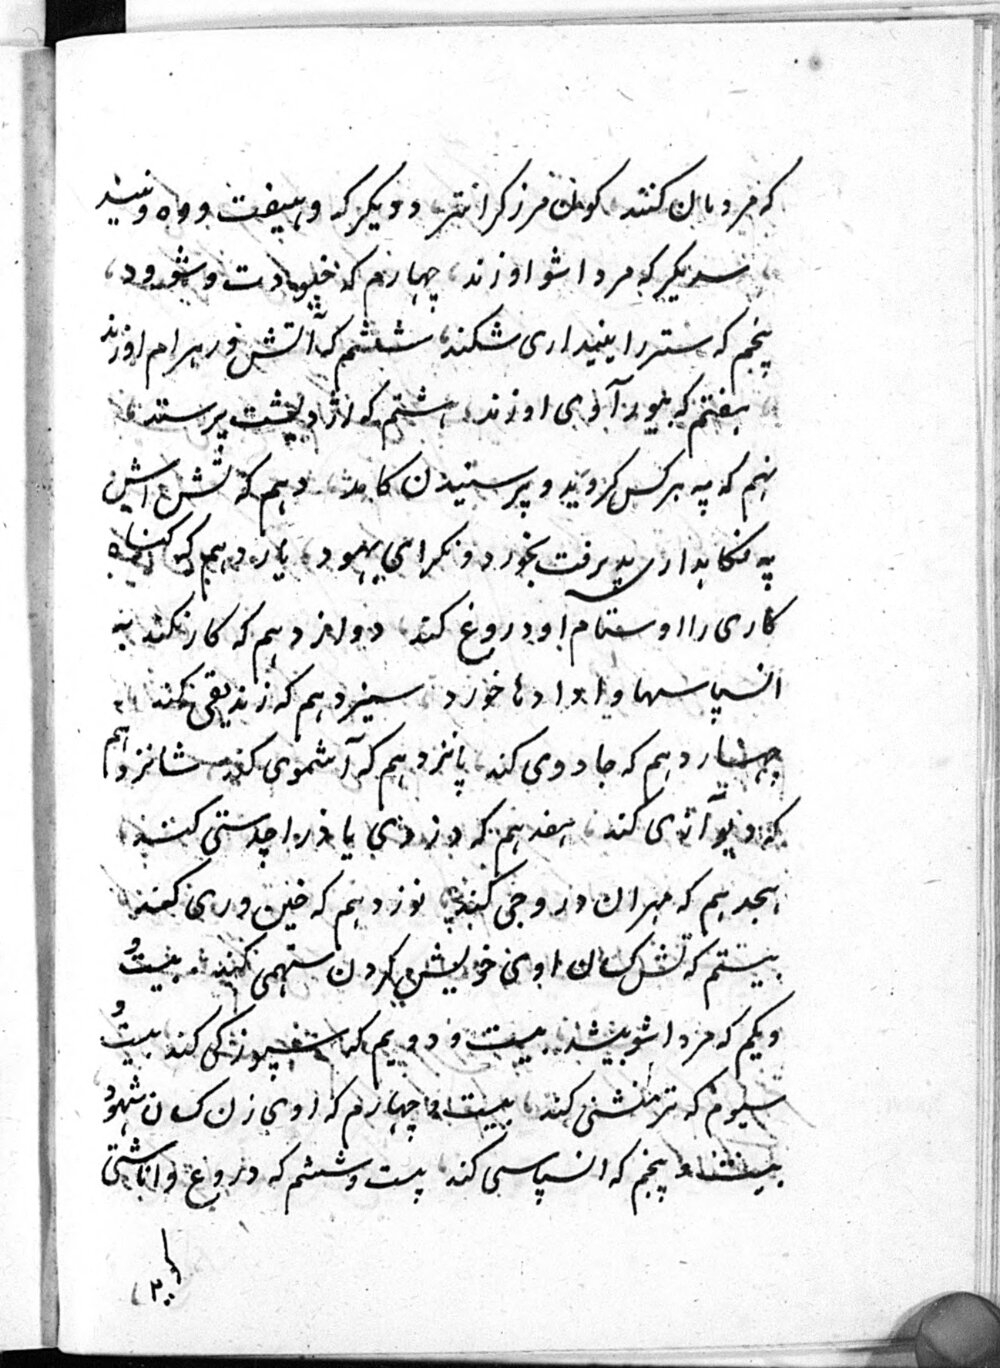 که مردمان کنند کون مرز گرانتر دویگر که وهیفت ووه ونید
سدیگر که مرد اشو اوزند چهارم که خیودت وشورد
پنجم که ستر را بینداری شکند ششم که آتش ورهرام اوزند
هفتم که بیور آوی اوزند هشتم که اژدیشت پرستد
نهم که په هر کس گروید و پرستیدن کامد دهم که تش اش
په نگاهداری پدیرفت بخورد و نگرای بهود یازدهم که گناه
کاری را اوستام او دروغ کند دوازدهم که کار نکند به
انسپاسها واوادها خورد سیزدهم که زندیقی کند
چهاردهم که جادوی کند پانزدهم که آشموی کند شانزدهم
که دیو آتزی کند هفدهم که دزدی یا دزا چدستی کند
هجدهم که مهران دروجی کند نوزدهم که خین وری کند
بیستم که تش کسان اوی خویش کردن ستهمی کند بیست و
ویکم که مرد اشو بیشد بیست و دویم که سفپوزگی کند بیست و
سیوم که ترمنشنی کند بیست و چهارم که اوی زن کسان شهود
بیست و پنجم که انسپاسی کند بیست و ششم که دروغ و اناشتی